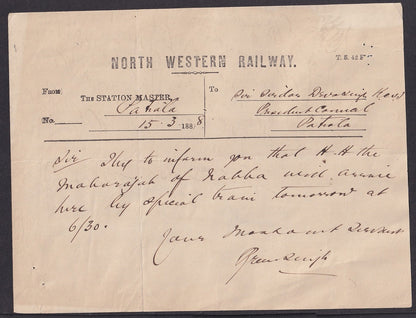 NORTH WESTERN RAILWAY.
T. S. 42 F
From
The STATION MASTER,
Patiala
No.
15.3.1888
To
Sir Sirdar Deva Singh
President Council
Patiala
Sir I beg to inform you that H. H. the
Maharajah of Nabha will arrive
here by special train tomorrow at
6/30.
Your Most obdt Servant